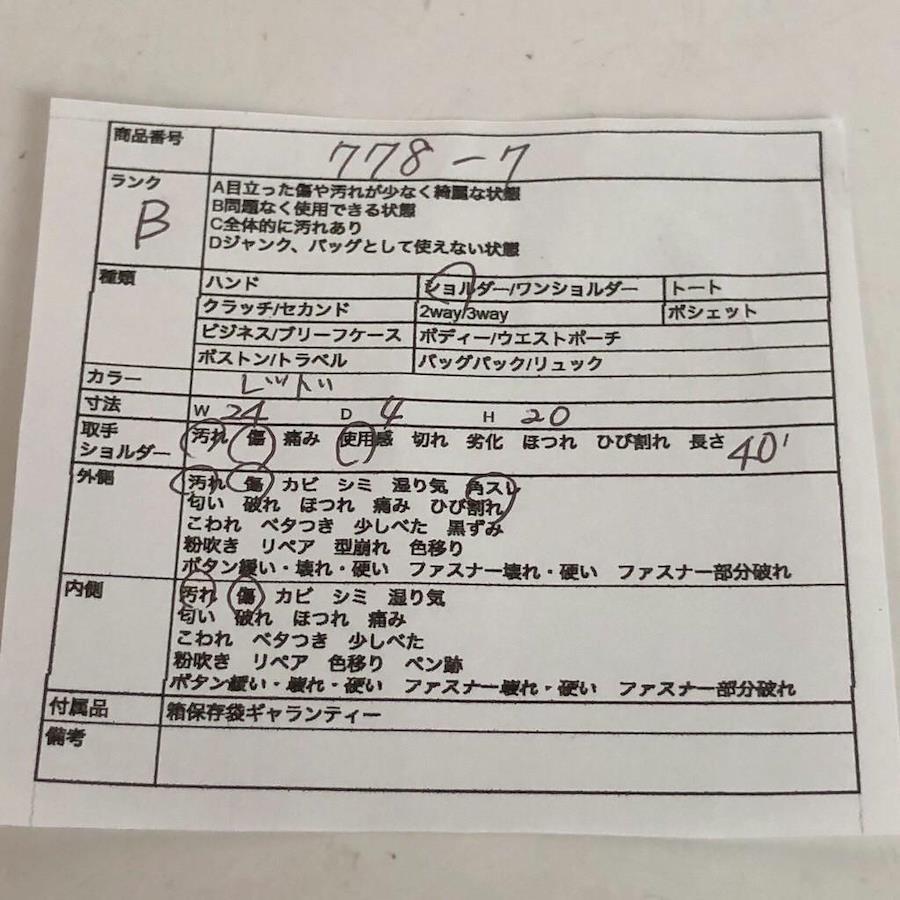 商品番号 778-7
ランク B
A目立った傷や汚れが少なく綺麗な状態
B問題なく使用できる状態
C全体的に汚れあり
Dジャンク、バッグとして使えない状態
種類 ハンド ショルダー/ワンショルダー トート
クラッチ/セカンド 2way/3way ポシェット
ビジネス/ブリーフケース ボディー/ウエストポーチ
ボストン/トラベル バッグパック/リュック
カラー レッド
寸法 W 24 D 4 H 20
取手 汚れ 傷 痛み 使用感 切れ 劣化 ほつれ ひび割れ 長さ 40
ショルダー
外側 汚れ 傷 カビ シミ 湿り気 角スレ
匂い 破れ ほつれ 痛み ひび割れ
こわれ ベタつき 少しべた 黒ずみ
粉吹き リペア 型崩れ 色移り
ボタン緩い・壊れ・硬い ファスナー壊れ・硬い ファスナー部分破れ
内側 汚れ 傷 カビ シミ 湿り気
匂い 破れ ほつれ 痛み
こわれ ベタつき 少しべた
粉吹き リペア 色移り ペン跡
ボタン緩い・壊れ・硬い ファスナー壊れ・硬い ファスナー部分破れ
付属品 箱保存袋ギャランティー
備考